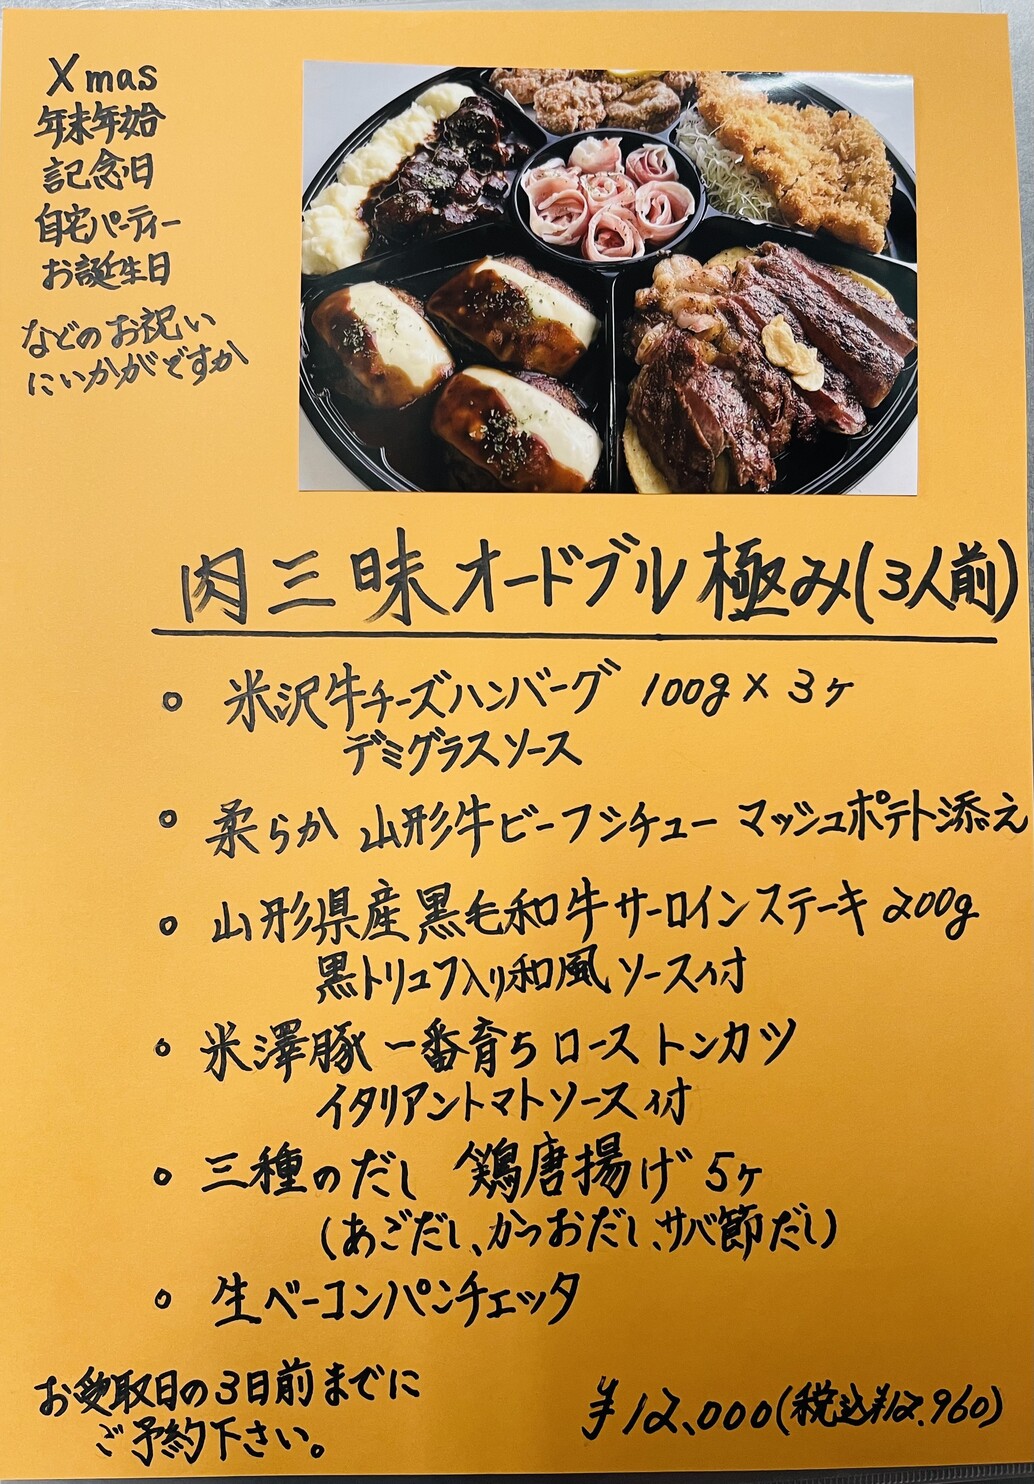 Xmas
年末年始
記念日
自宅パーティー
お誕生日
などのお祝い
にいかがですか
肉三昧オードブル極み(3人前)
○ 米沢牛チーズハンバーグ 100g×3ヶ
デミグラスソース
○ 柔らか 山形牛ビーフシチュー マッシュポテト添え
○ 山形県産黒毛和牛サーロインステーキ 200g
黒トリュフ入り和風ソース付
○ 米澤豚一番育ちロース トンカツ
イタリアントマトソース付
○ 三種のだし 鶏唐揚げ 5ヶ
(あごだし、かつおだし、サバ節だし)
○ 生ベーコンパンチェッタ
お受取日の3日前までに
ご予約下さい。
¥12,000(税込¥12,960)